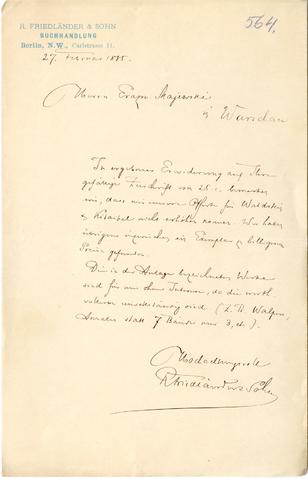 R. FRIEDLÄNDER & SOHN
BUCHHANDLUNG
Berlin, N.W., Carlstrasse 11.
564.
27. Februar 1885.
Herrn Erazm Majewski
in Warschau
In ergebener Erwiderung auf Ihre
gefällige Zuschrift vom 25. c. bemerken
wir, dass wir unsere Offerte für Waldstein
& Kitaibel nicht erhöhen können. Wir haben
übrigens inzwischen ein Exemplar zu billigem
Preise gefunden.
Die in der Anlage bezeichneten Werke
sind für uns ohne Interesse, da die werth-
volleren unvollständig sind (z. B. Walpers,
Annales statt 7 Bände nur 3, etc.).
Hochachtungsvoll
R Friedländer & Sohn